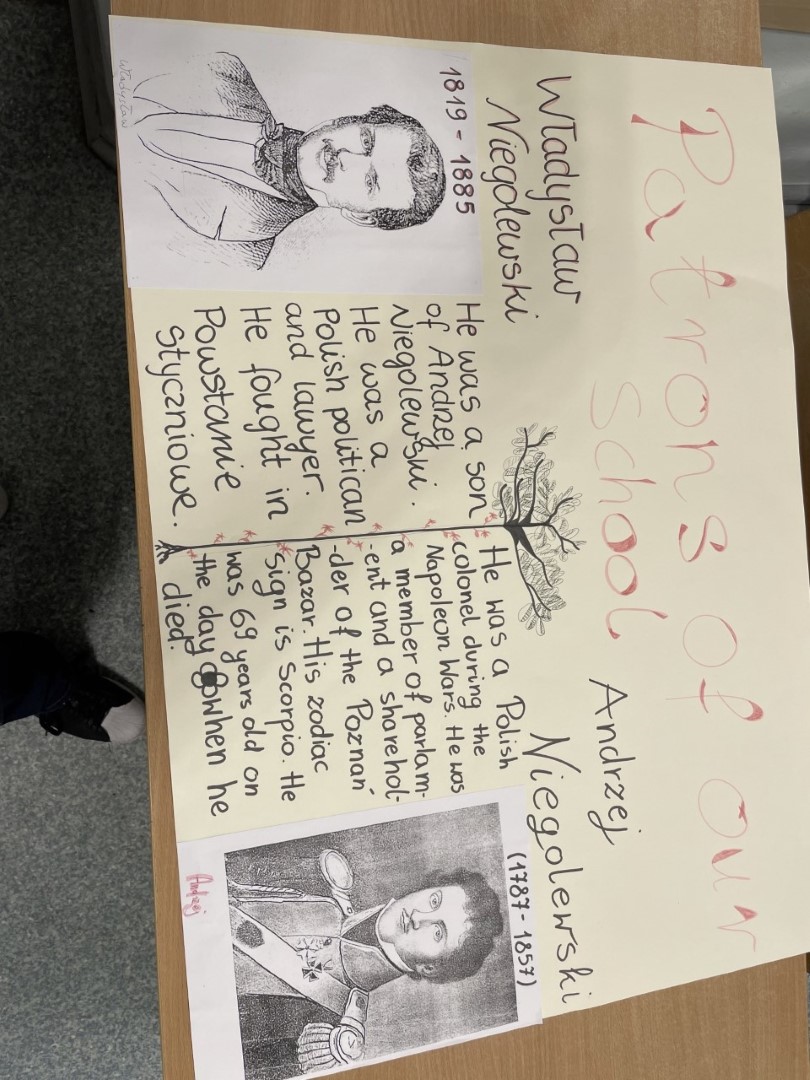 Patrons of our
School
Władysław
Niegolewski
1819 - 1885
Władysław
He was a son
of Andrzej
Niegolewski.
He was a
Polish politican
and lawyer.
He fought in
Powstanie
Styczniowe.
Andrzej
Niegolewski
(1787-1857)
He was a Polish
colonel during the
Napoleon Wars. He was
a member of parlam-
-ent and a sharehol-
-der of the Poznań
Bazar. His zodiac
sign is Scorpio. He
was 69 years old on
the day when he
died.
Andrzej